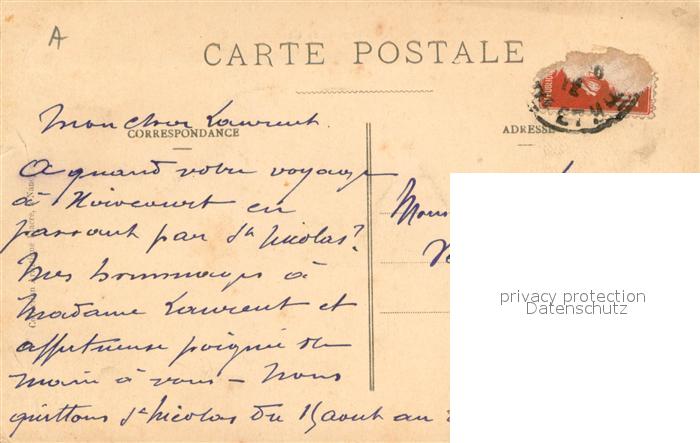 A
CARTE POSTALE
Mon cher Laurent.
CORRESPONDANCE
ADRESSE
A quand votre voyage
à en
passant par St Nicolas?
Mes hommages à
Madame Laurent et
affectueuse poignée de
main à vous — Nous
quittons St Nicolas du 15 aout au
Mons
privacy protection
Datenschutz